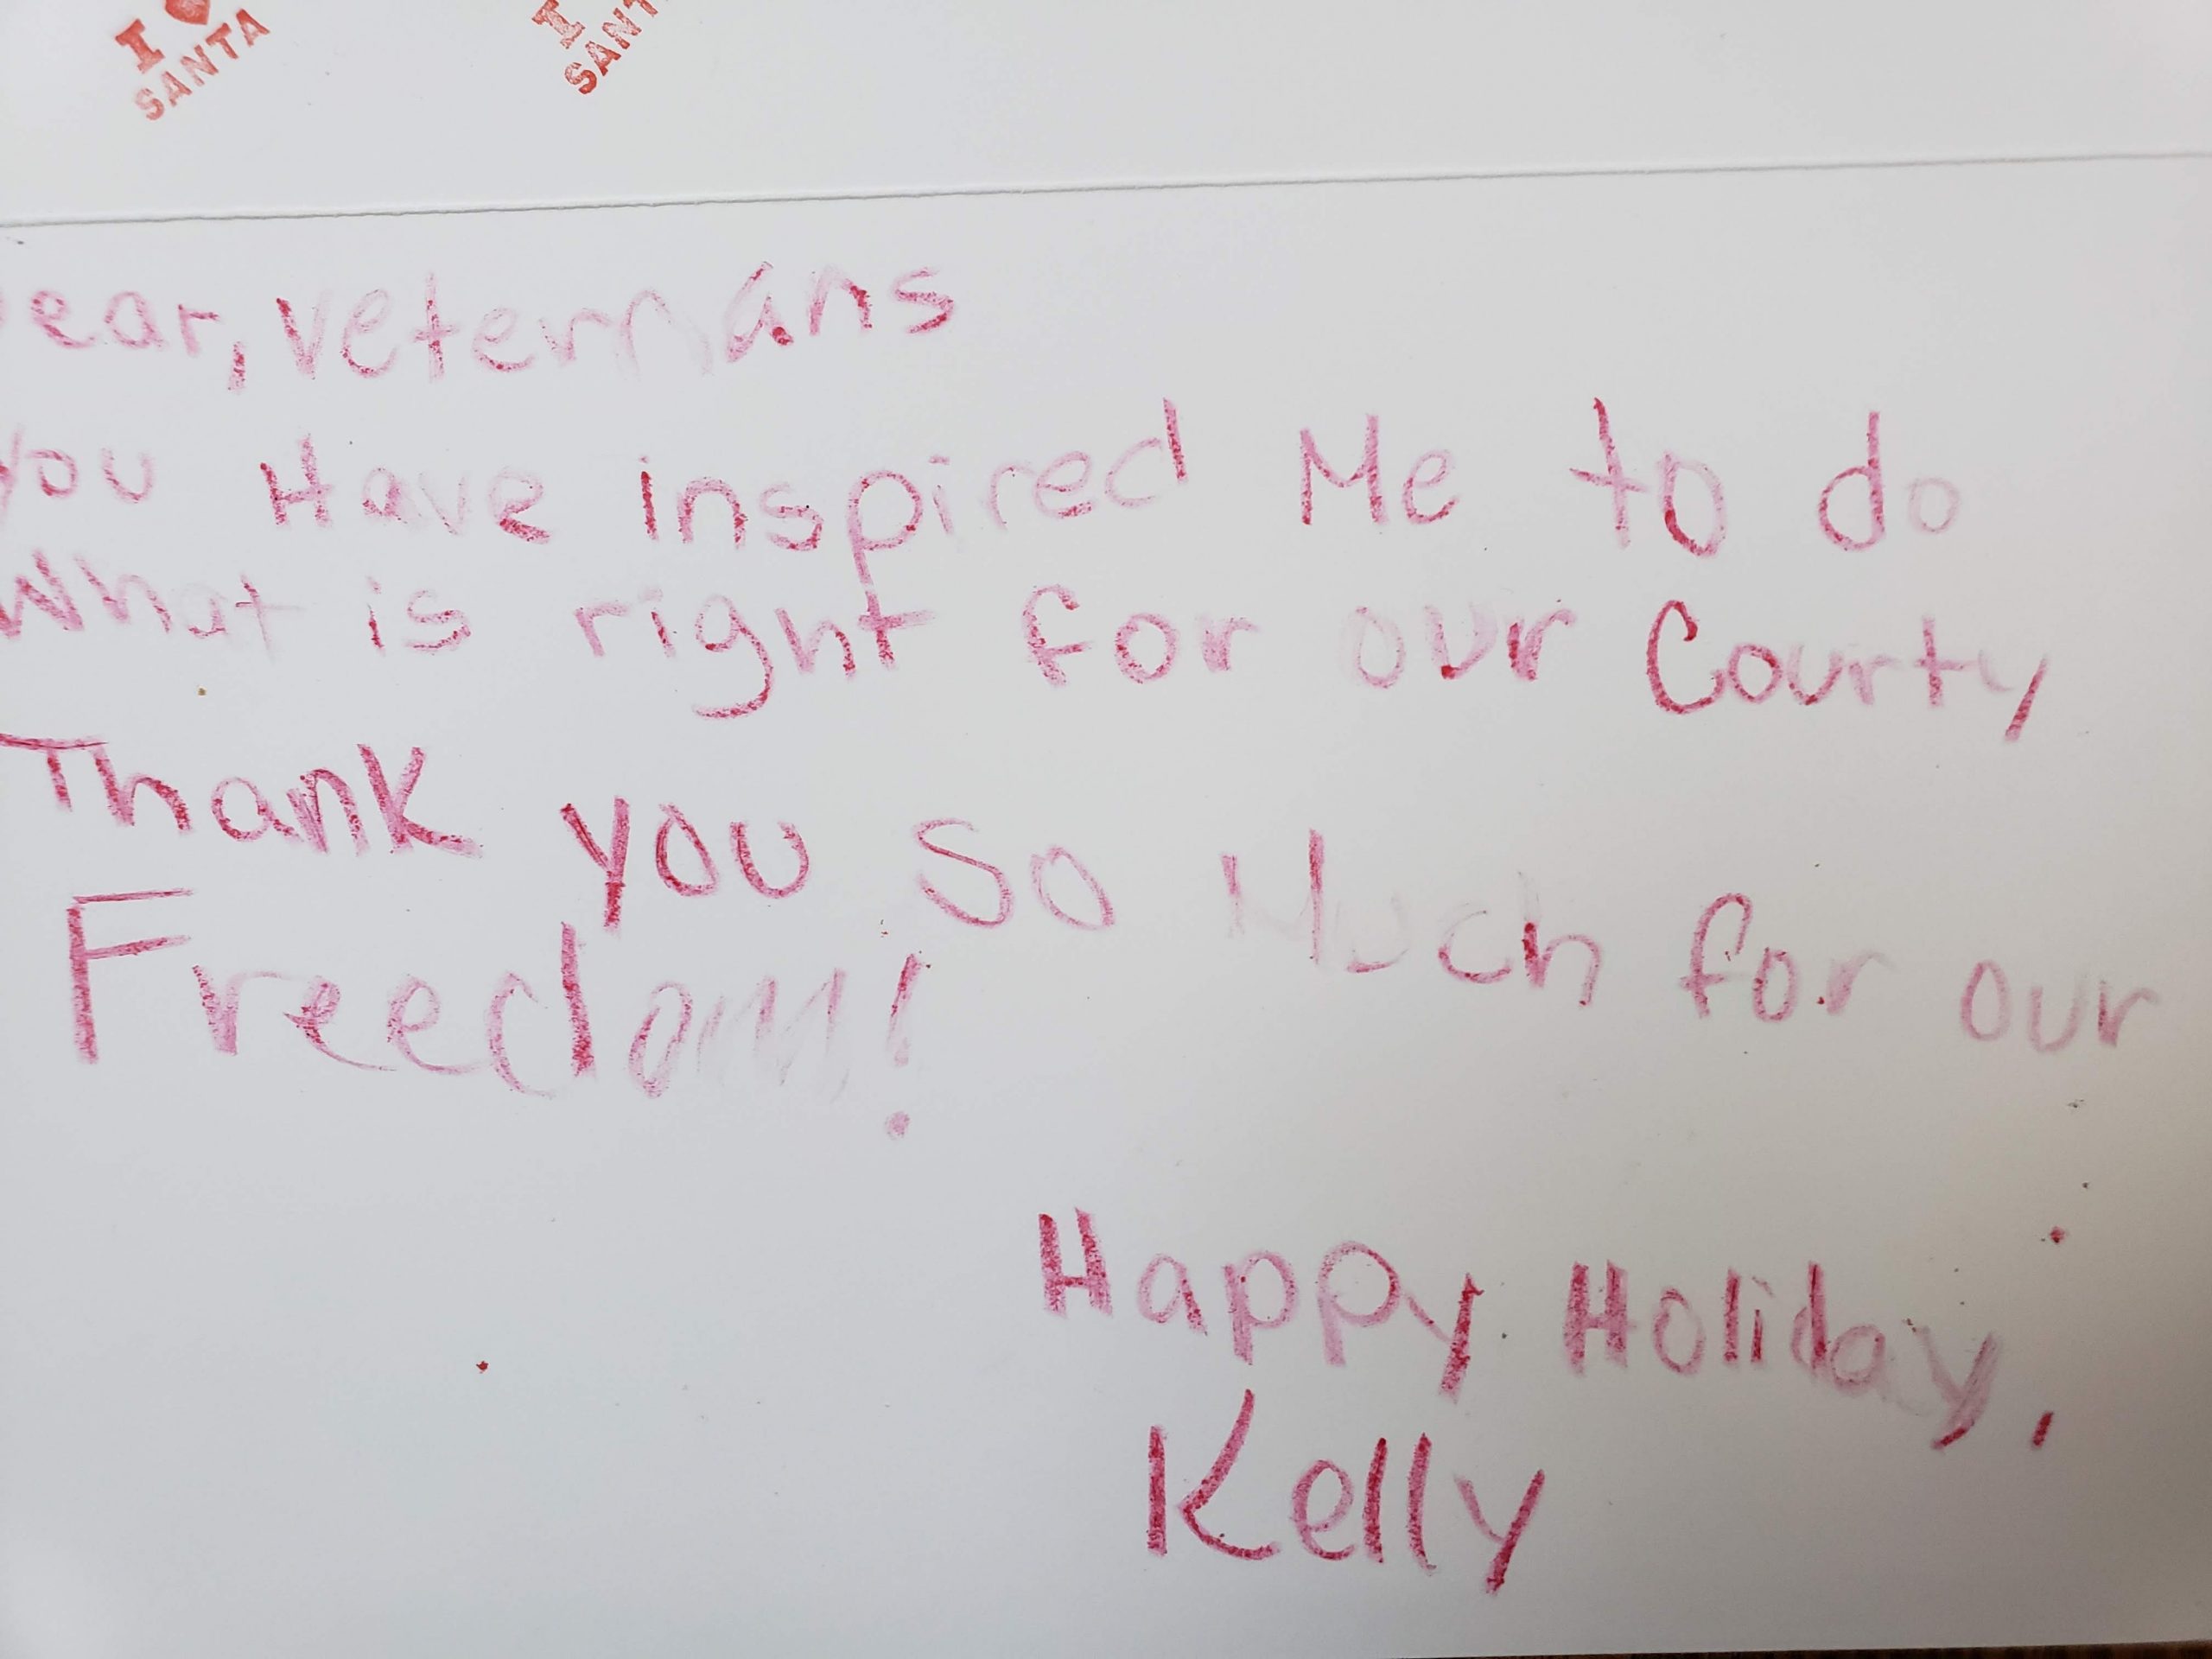 I ♥ SANTA
I SANT
ear, veternans
you Have inspired Me to do
What is right for our Courty
Thank you So Much for our
Freedom!
Happy Holiday,
Kelly